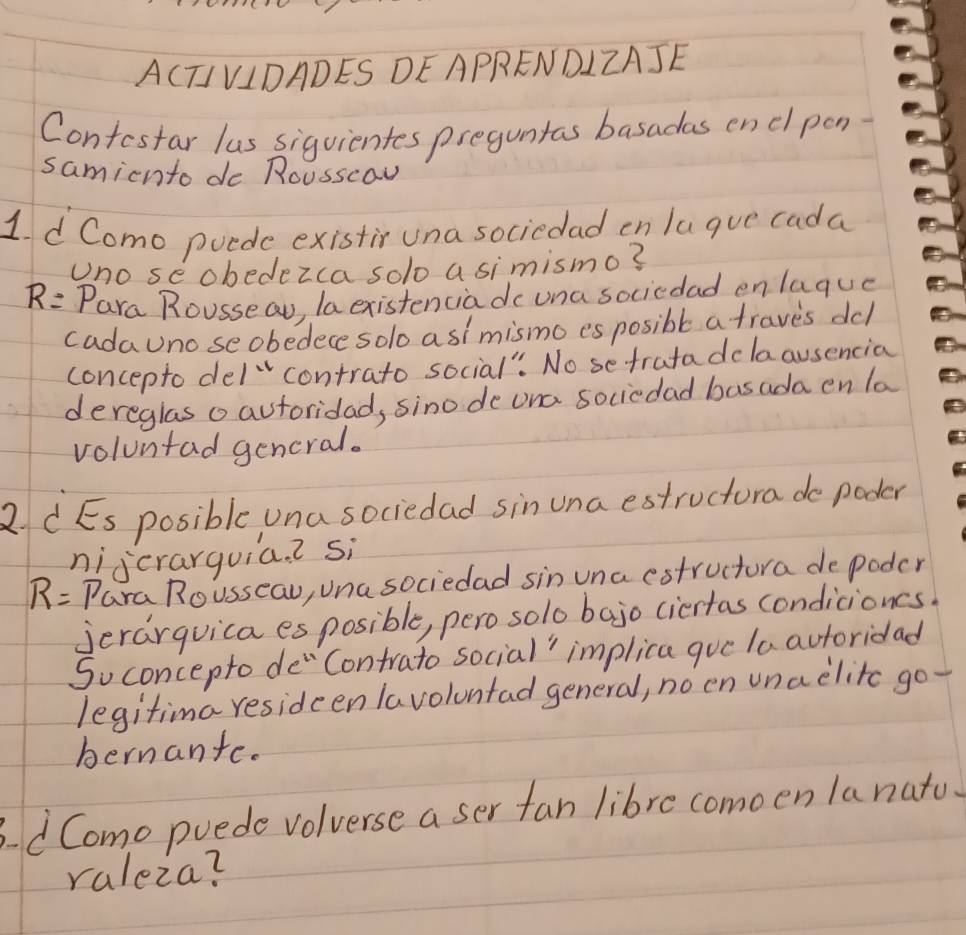 ACTIVIDADES DE APRENDIZAJE
Contestar las siguientes preguntas basadas en el pen-
samiento de Rousseau
1. ¿Como puede existir una sociedad en la que cada
uno se obedezca solo a si mismo?
R= Para Rousseau, la existencia de una sociedad en la que
cada uno se obedece solo a sí mismo es posible a través del
concepto del "contrato social". No se trata de la ausencia
de reglas o autoridad, sino de una sociedad basada en la
voluntad general.
2. ¿Es posible una sociedad sin una estructura de poder
ni jerarquía? si
R= Para Rousseau, una sociedad sin una estructura de poder
jerárquica es posible, pero solo bajo ciertas condiciones.
Su concepto de "Contrato social" implica que la autoridad
legítima reside en la voluntad general, no en una élite go-
bernante.
3- ¿Como puede volverse a ser tan libre como en la natu-
raleza?